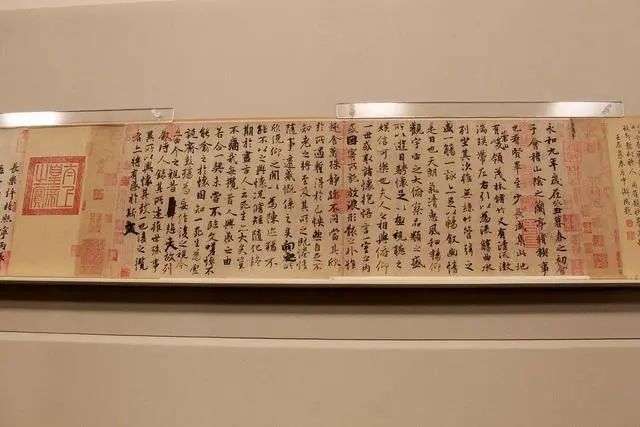 永和九年歲在癸丑暮春之初會
于會稽山陰之蘭亭脩稧事
也羣賢畢至少長咸集此地
有崇山峻領茂林脩竹又有清流激
湍暎帶左右引以為流觴曲水
列坐其次雖無絲竹管弦之
盛一觴一詠亦足以暢敘幽情
是日也天朗氣清惠風和暢仰
觀宇宙之大俯察品類之盛
所以遊目騁懷足以極視聽之
娛信可樂也夫人之相與俯仰
一世或取諸懷抱悟言一室之內
或因寄所託放浪形骸之外雖
趣舍萬殊靜躁不同當其欣
於所遇蹔得於己怏然自足不
知老之將至及其所之既惓情
隨事遷感慨係之矣向之所
欣俛仰之閒以為陳迹猶不
能不以之興懷況脩短隨化終
期於盡古人云死生亦大矣豈
不痛哉每攬昔人興感之由
若合一契未嘗不臨文嗟悼不
能喻之於懷固知一死生為虛
誕齊彭殤為妄作後之視今
亦由今之視昔悲夫故列
敘時人錄其所述雖世殊事
異所以興懷其致一也後之攬
者亦將有感於斯文
長樂許將熙寧丙辰